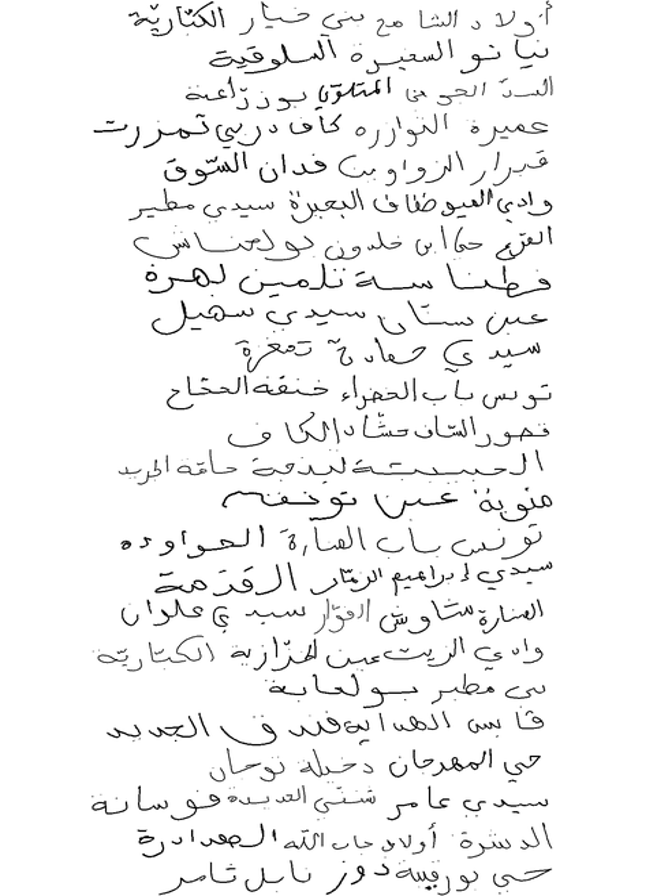 أولاد الشامخ بني خيار الكتّاريّة
نيانو السعيرة السلوقية
السدّ الجوفي المتلوّي بوزرّاعنة
عميرة التوازره كاف دربي تمزرت
قبرار الزواوين فدان السّوق
وادي العيو ضفاف البحيرة سيدي مطير
القرع حي ابن خلدون بولعناش
فطناسة تلمين لهرة
عين ستان سيدي سهيل
سيدي حمادة تمغزة
تونس باب الخضراء خنقة الحجّاج
قصور السّاف حشّاد الكاف
الحبيبية ليذمة حامة الجريد
منوبة عين
تونس باب المنارة الحواوده
سيدي إبراهيم الزهّار القدمة
المنارة شاوش الفوّار سيدي علوان
وادي الزيت عين الخرّازية الكبّاريّة
سي مطير بولعابة
قابس الهداية فندق الجديد
حي المهرجان دخيلة توجان
سيدي عامر شنني الجديدة فوسانة
الدشرة أولاد جاب الله الصمادرة
حي بورقيبة دوز نابل ثامر